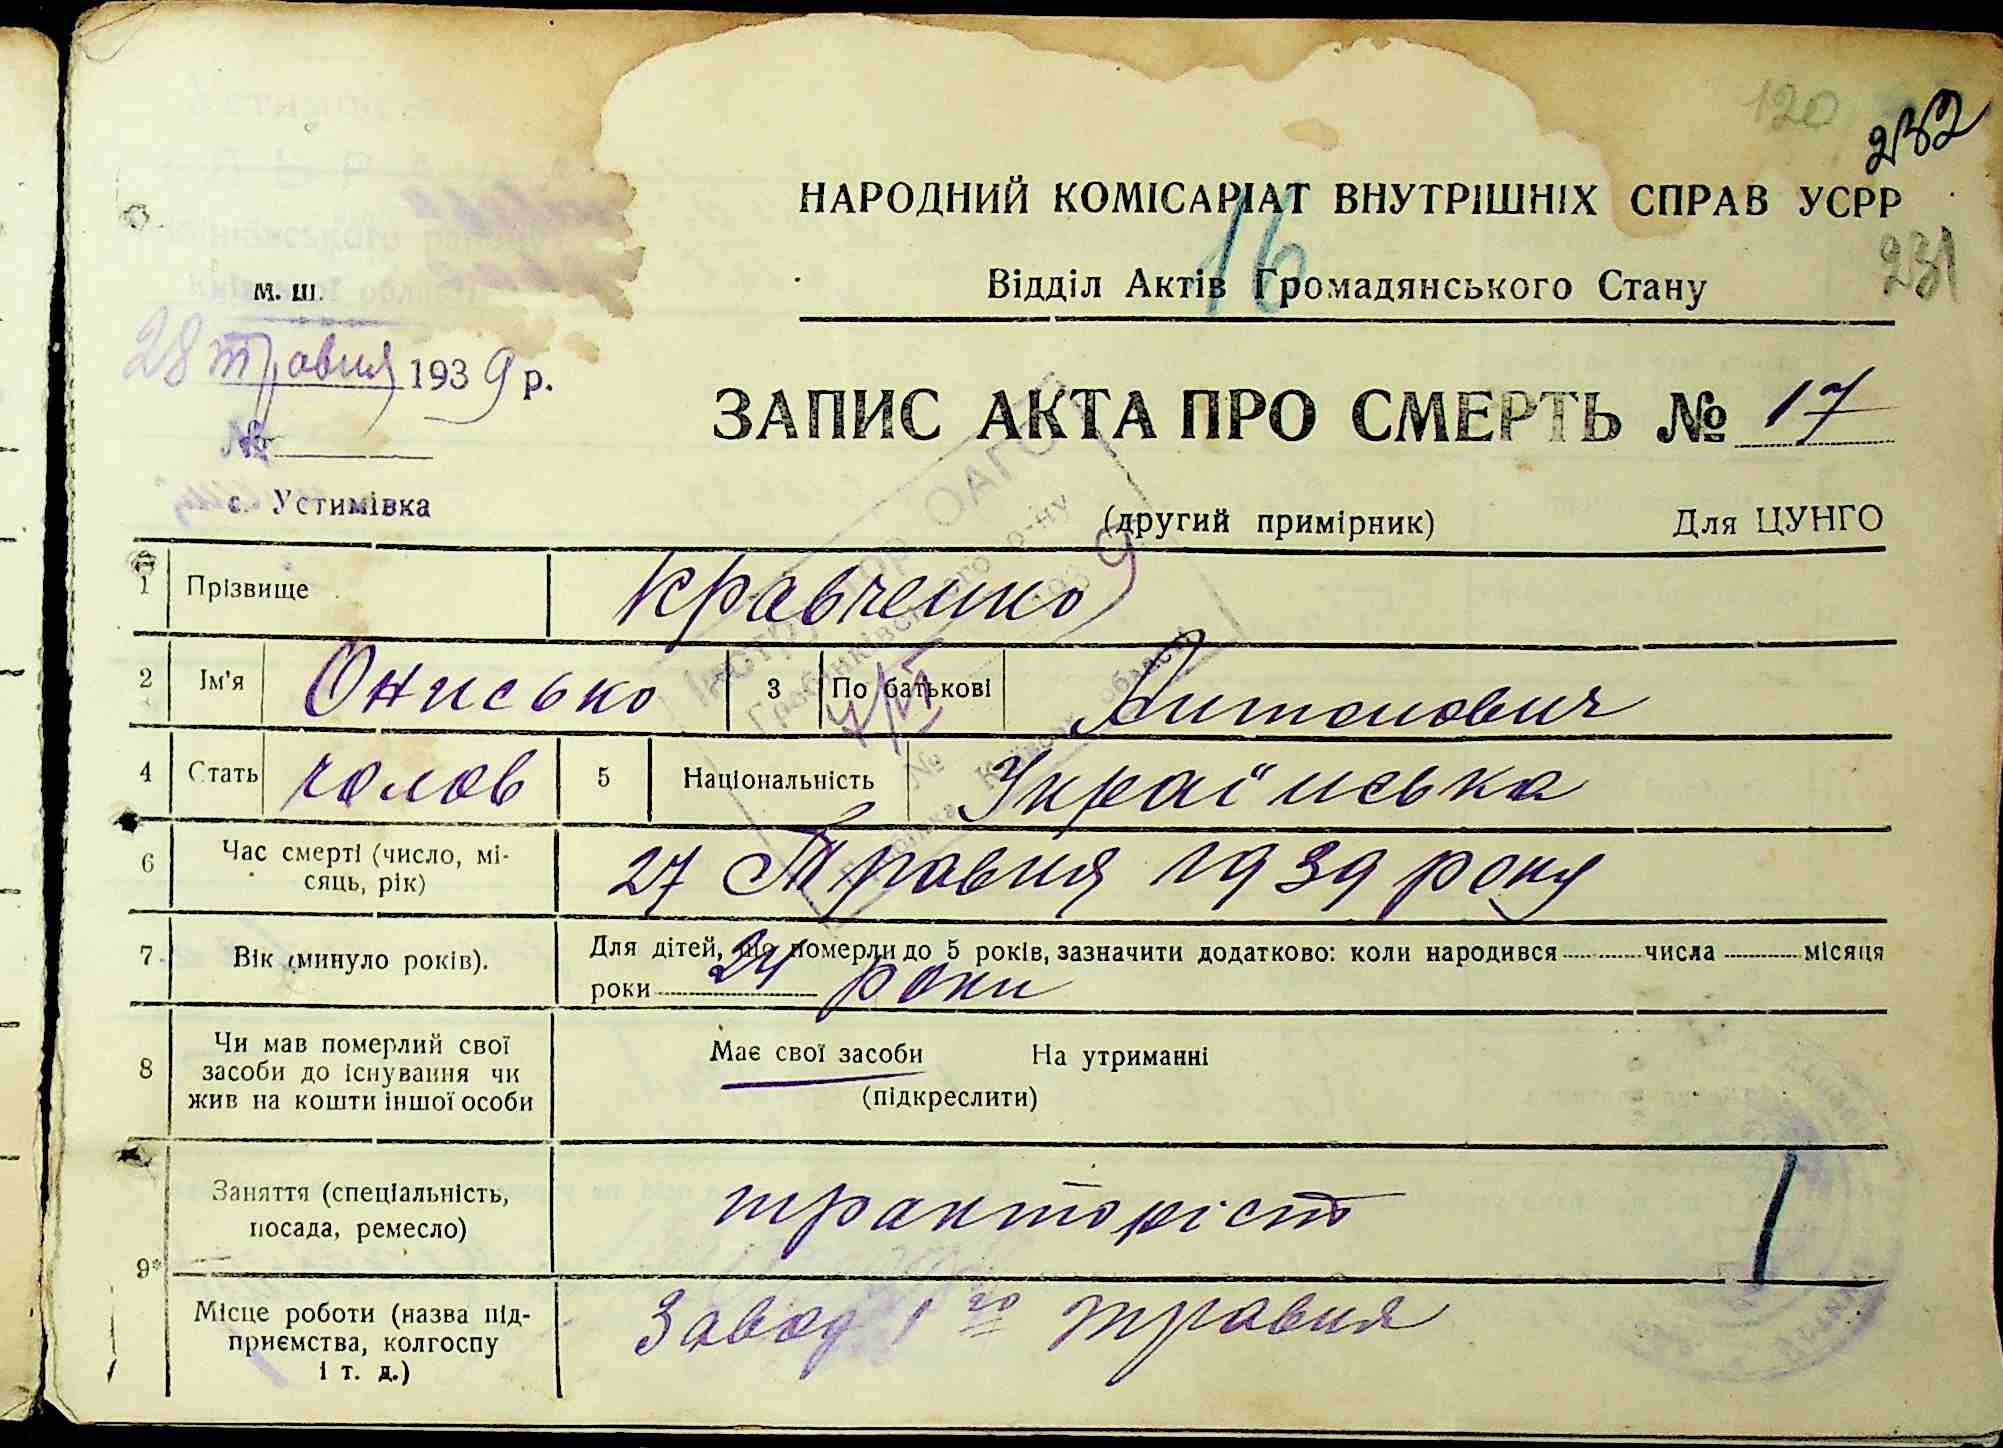 120
232
НАРОДНИЙ КОМІСАРІАТ ВНУТРІШНІХ СПРАВ УСРР
16
231
Відділ Актів Громадянського Стану
М. Ш.
28 травня 1939 р.
№
ЗАПИС АКТА ПРО СМЕРТЬ № 17
с. Устимівка
(другий примірник) Для ЦУНГО
1 Прізвище Кравченко
2 Ім'я Онисько 3 По батькові Антонович
4 Стать чолов 5 Національність Українська
6 Час смерті (число, мі-
сяць, рік) 27 Травня 1939 року
7 Вік (минуло років). Для дітей, що померли до 5 років, зазначити додатково: коли народився числа місяця
роки 24 роки
8 Чи мав померлий свої
засоби до існування чи
жив на кошти іншої особи
Має свої засоби На утриманні
(підкреслити)
9* Заняття (спеціальність,
посада, ремесло) тракторіст
Місце роботи (назва під-
приємства, колгоспу
і т. д.) Завод 1го травня